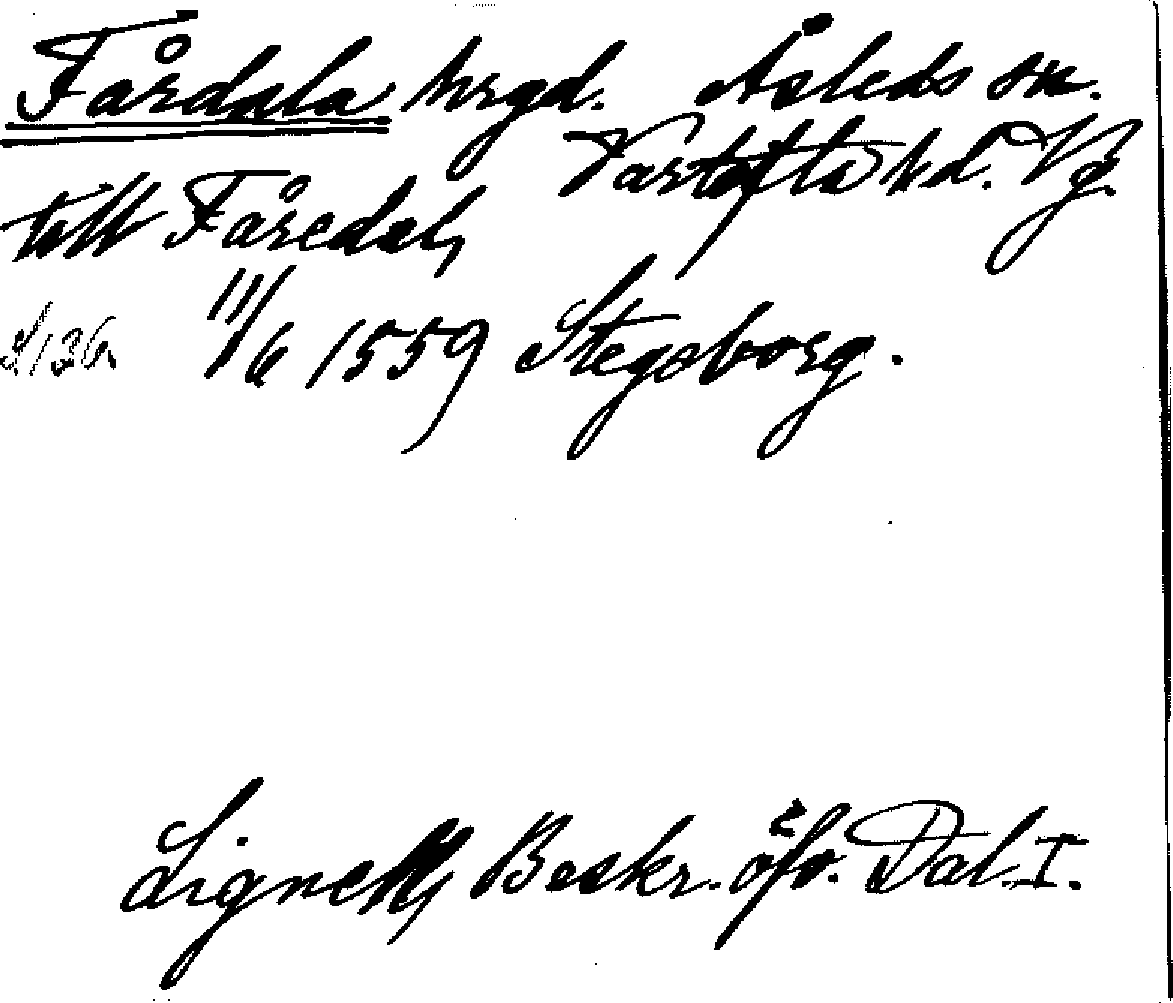 Fårdala hrgd. Åsleds sn.
Vartofta hd. Vg.
till Fåredal,
S. 136. 11/6 1559 Stegeborg.
Lignell, Beskr. öfv. Dal. I.